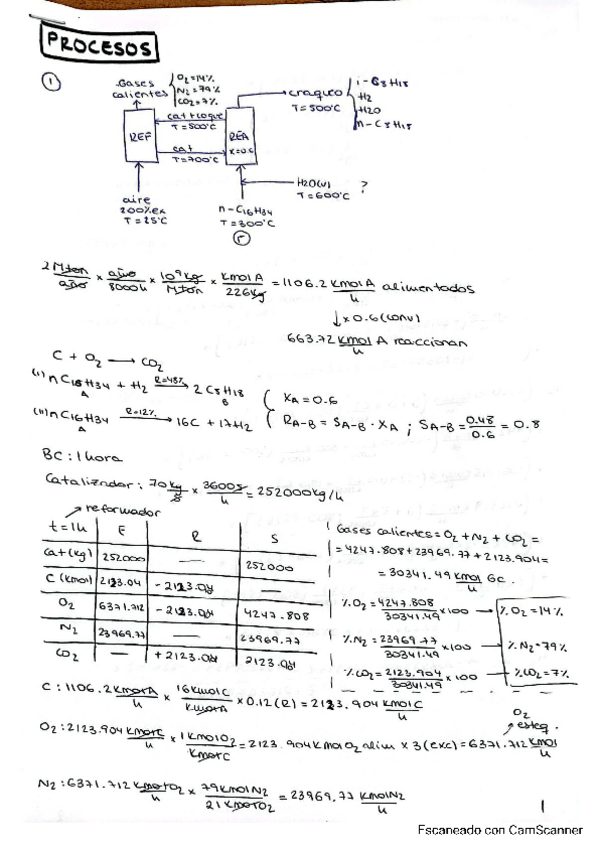 PROCESOS
1
Gases calientes
O2=14%
N2=79%
CO2=7%
craqueo
T=500ºC
i-C8H18
H2
H2O
n-C8H18
REF
cat+coque
T=500ºC
cat
T=700ºC
REA
x=0.6
H2O(v) ?
T=600ºC
aire
200%ex
T=25ºC
n-C16H34
T=300ºC
2 Mton/año × año/8000h × 10^9 kg/Mton × kmol A/226kg = 1106.2 kmol A/h alimentados
↓ × 0.6 (conv)
663.72 kmol A/h reaccionan
C + O2 → CO2
(i) nC16H34 + H2 R=48% → 2 C8H18
A B
(ii) nC16H34 R=12% → 16C + 17H2
A
XA = 0.6
RA-B = SA-B · XA ; SA-B = 0.48/0.6 = 0.8
BC: 1 hora
Catalizador: 70 kg/s × 3600s/h = 252000 kg/h
reformador
t=1h E R S
Cat(kg) 252000 — 252000
C (kmol) 2123.04 -2123.04 —
O2 6371.712 -2123.04 4247.808
N2 23969.77 — 23969.77
CO2 — +2123.04 2123.04
Gases calientes = O2 + N2 + CO2 =
= 4247.808 + 23969.77 + 2123.904 =
= 30341.49 kmol GC/h.
%O2 = 4247.808/30341.49 × 100 → %O2 = 14%
%N2 = 23969.77/30341.49 × 100 → %N2 = 79%
%CO2 = 2123.904/30341.49 × 100 → %CO2 = 7%
C: 1106.2 kmol A/h × 16 kmol C/kmol A × 0.12 (R) = 2123.904 kmol C/h
O2 esteq.
O2: 2123.904 kmol C/h × 1 kmol O2/kmol C = 2123.904 kmol O2 alim × 3 (exc) = 6371.712 kmol/h
N2: 6371.712 kmol O2/h × 79 kmol N2/21 kmol O2 = 23969.77 kmol N2/h
1
Escaneado con CamScanner